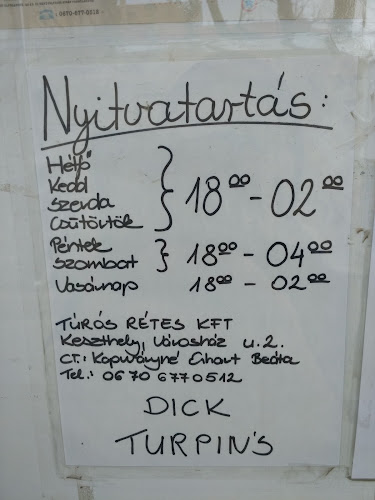 : 0670-677-0512
Nyitvatartás:
Hétfő
Kedd
Szerda
Csütörtök
18⁰⁰ - 02⁰⁰
Péntek
Szombat
18⁰⁰ - 04⁰⁰
Vasárnap 18⁰⁰ - 02⁰⁰
TÚRÓS RÉTES KFT
Keszthely, Városház u. 2.
CT.: Beáta
Tel.: 06 70 6770512
DICK
TURPIN'S